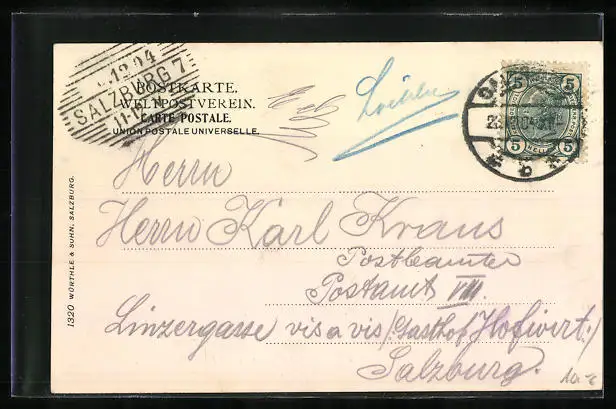 12 04
SALZBURG 7
11-
POSTKARTE.
WELTPOSTVEREIN.
CARTE POSTALE.
UNION POSTALE UNIVERSELLE.
5 5
5 5
Herrn
Herrn Karl Kraus
Postbeamter
Postamt VIII.
Linzergasse vis a vis /: Gasthof Hofwirt :/
Salzburg.
1320 WÜRTHLE & SOHN, SALZBURG.